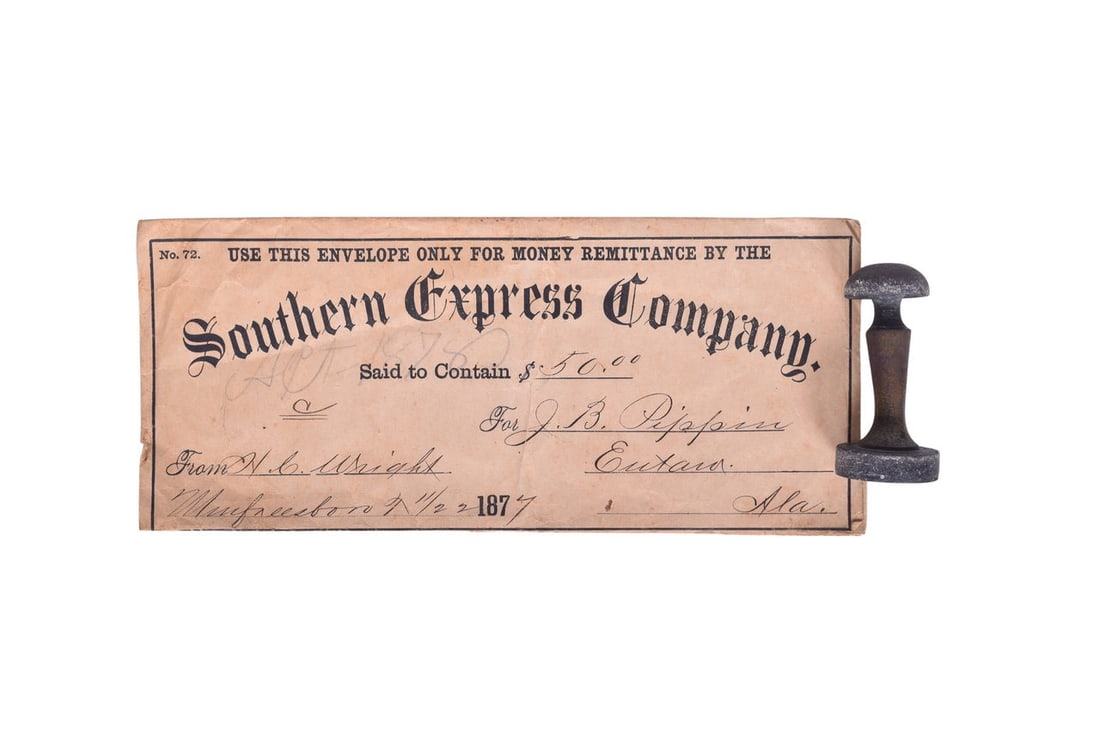 No. 72. USE THIS ENVELOPE ONLY FOR MONEY REMITTANCE BY THE
Southern Express Company.
Said to Contain $ 50.00
For J. B. Pippin
From H. C. Wright Eutaw.
Murfreesboro T 11/22 1877 Ala.